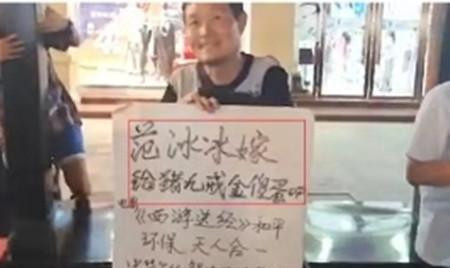 范冰冰嫁
给猪九戒金俊
电影
《西游送经》和平
环保 天人合一